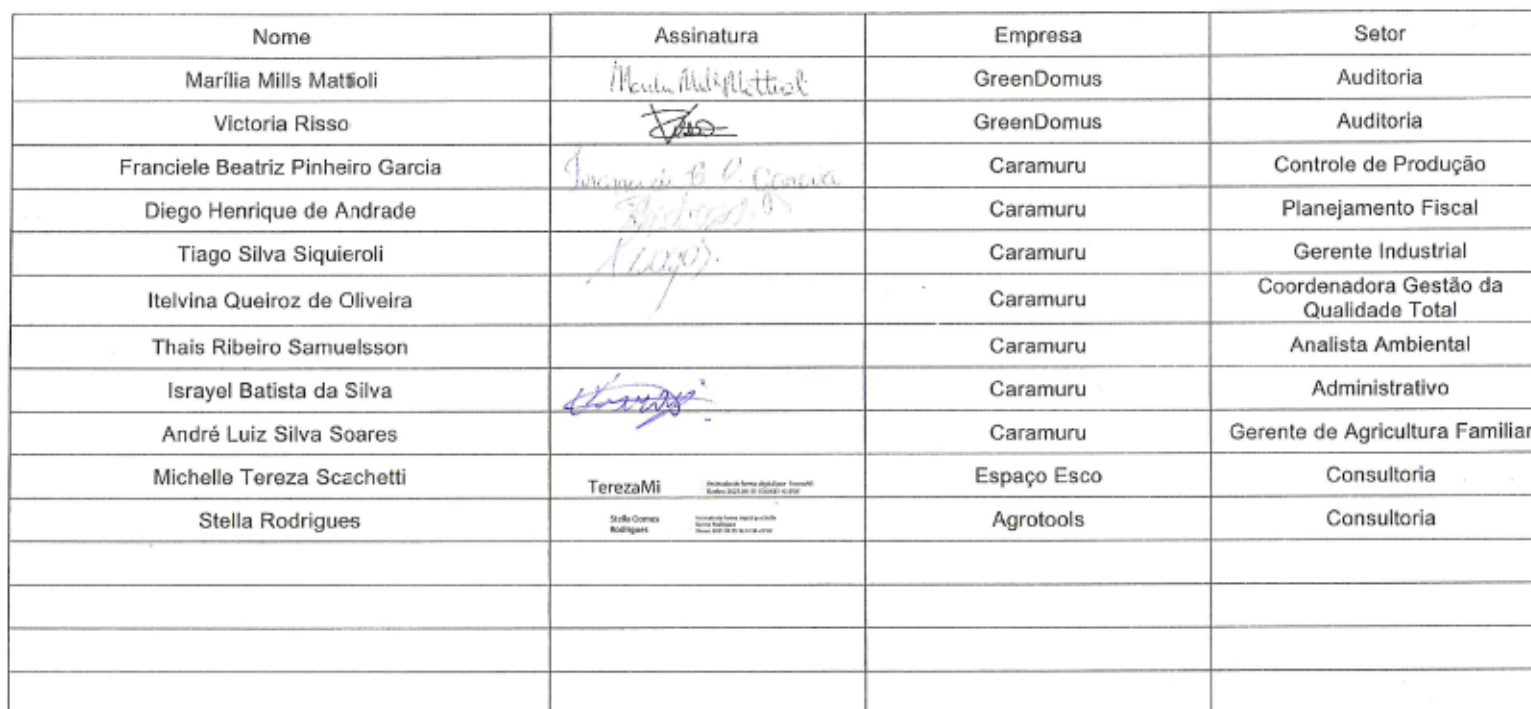 Nome Assinatura Empresa Setor
Marília Mills Mattioli GreenDomus Auditoria
Victoria Risso GreenDomus Auditoria
Franciele Beatriz Pinheiro Garcia Caramuru Controle de Produção
Diego Henrique de Andrade Caramuru Planejamento Fiscal
Tiago Silva Siquieroli Caramuru Gerente Industrial
Itelvina Queiroz de Oliveira Caramuru Coordenadora Gestão da
Qualidade Total
Thais Ribeiro Samuelsson Caramuru Analista Ambiental
Israyel Batista da Silva Caramuru Administrativo
André Luiz Silva Soares Caramuru Gerente de Agricultura Familiar
Michelle Tereza Scachetti TerezaMi Espaço Esco Consultoria
Stella Rodrigues Stella Gomes Agrotools Consultoria
Rodrigues